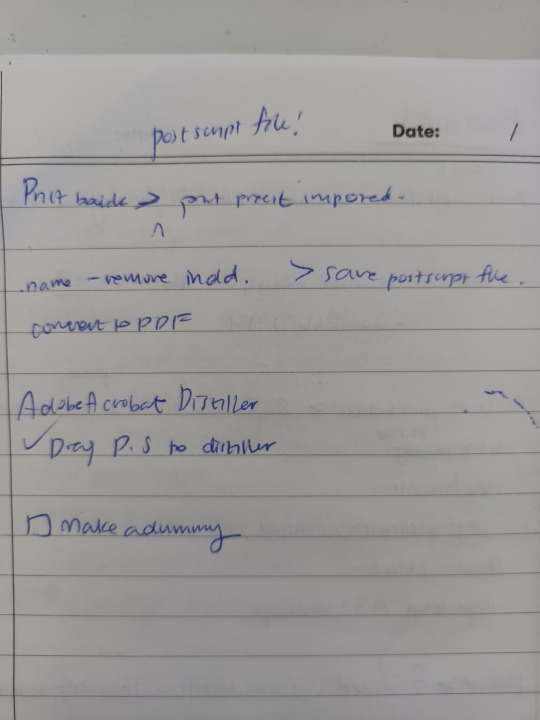 postscript file!
Date: /
Print > print preset impored.
^
.name - remove indd. > save postscript file.
convert to PDF
Adobe Acrobat Distiller
✓ Drag P.S to distiller
☐ Make a dummy